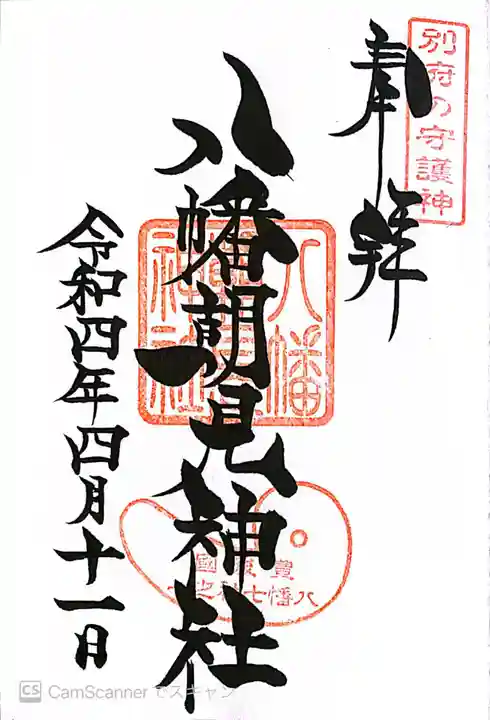 別府の守護神
奉拝
八幡朝見神社
令和四年四月十一日
八幡
神社
豊
國
八幡七社之
CS CamScanner でスキャン